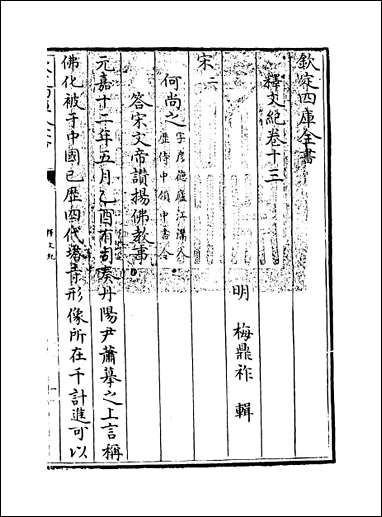 欽定四庫全書
釋文紀卷十三
明 梅鼎祚 輯
宋二
何尚之字彥德廬江灊人
歷侍中領中書令
答宋文帝讚揚佛教事
元嘉十二年五月乙酉有司奏丹陽尹蕭摹之上言稱
佛化被于中國已歷四代塔寺形像所在千計進可以
釋文紀